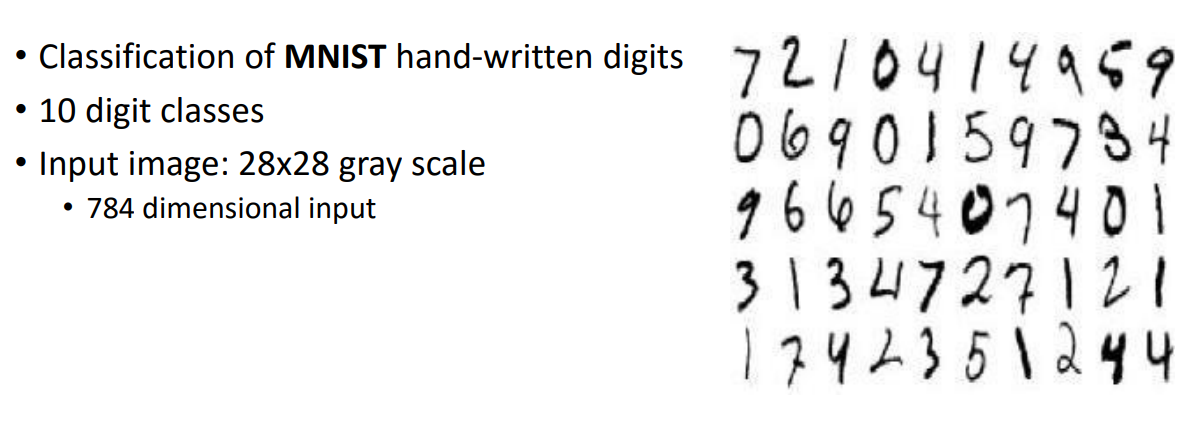 • Classification of MNIST hand-written digits
• 10 digit classes
• Input image: 28x28 gray scale
• 784 dimensional input
7 2 1 0 4 1 4 9 5 9
0 6 9 0 1 5 9 7 3 4
9 6 6 5 4 0 7 4 0 1
3 1 3 4 7 2 7 1 2 1
1 7 4 2 3 5 1 2 4 4